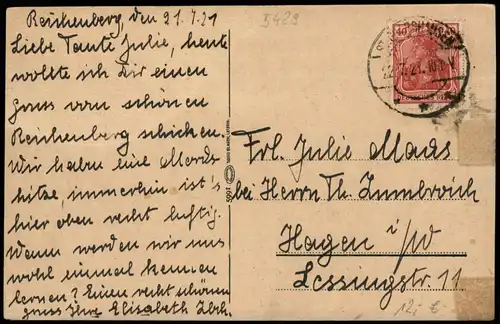 Reichenberg, den 21.7.21
Liebe Tante Julie, heute
wollte ich Dir einen
Gruss vom schönen
Reichenberg schicken.
Wir haben eine Mords
hitze, immerhin ist's
hier oben recht luftig.
Wann werden wir uns
wohl einmal kennen
lernen? Einen recht schönen
Gruss Ihre Elisabeth
5429
40
Frl. Julie Maas
bei Herrn Th. Zumbroich
Hagen i/W
Lessingstr. 11
12,-€